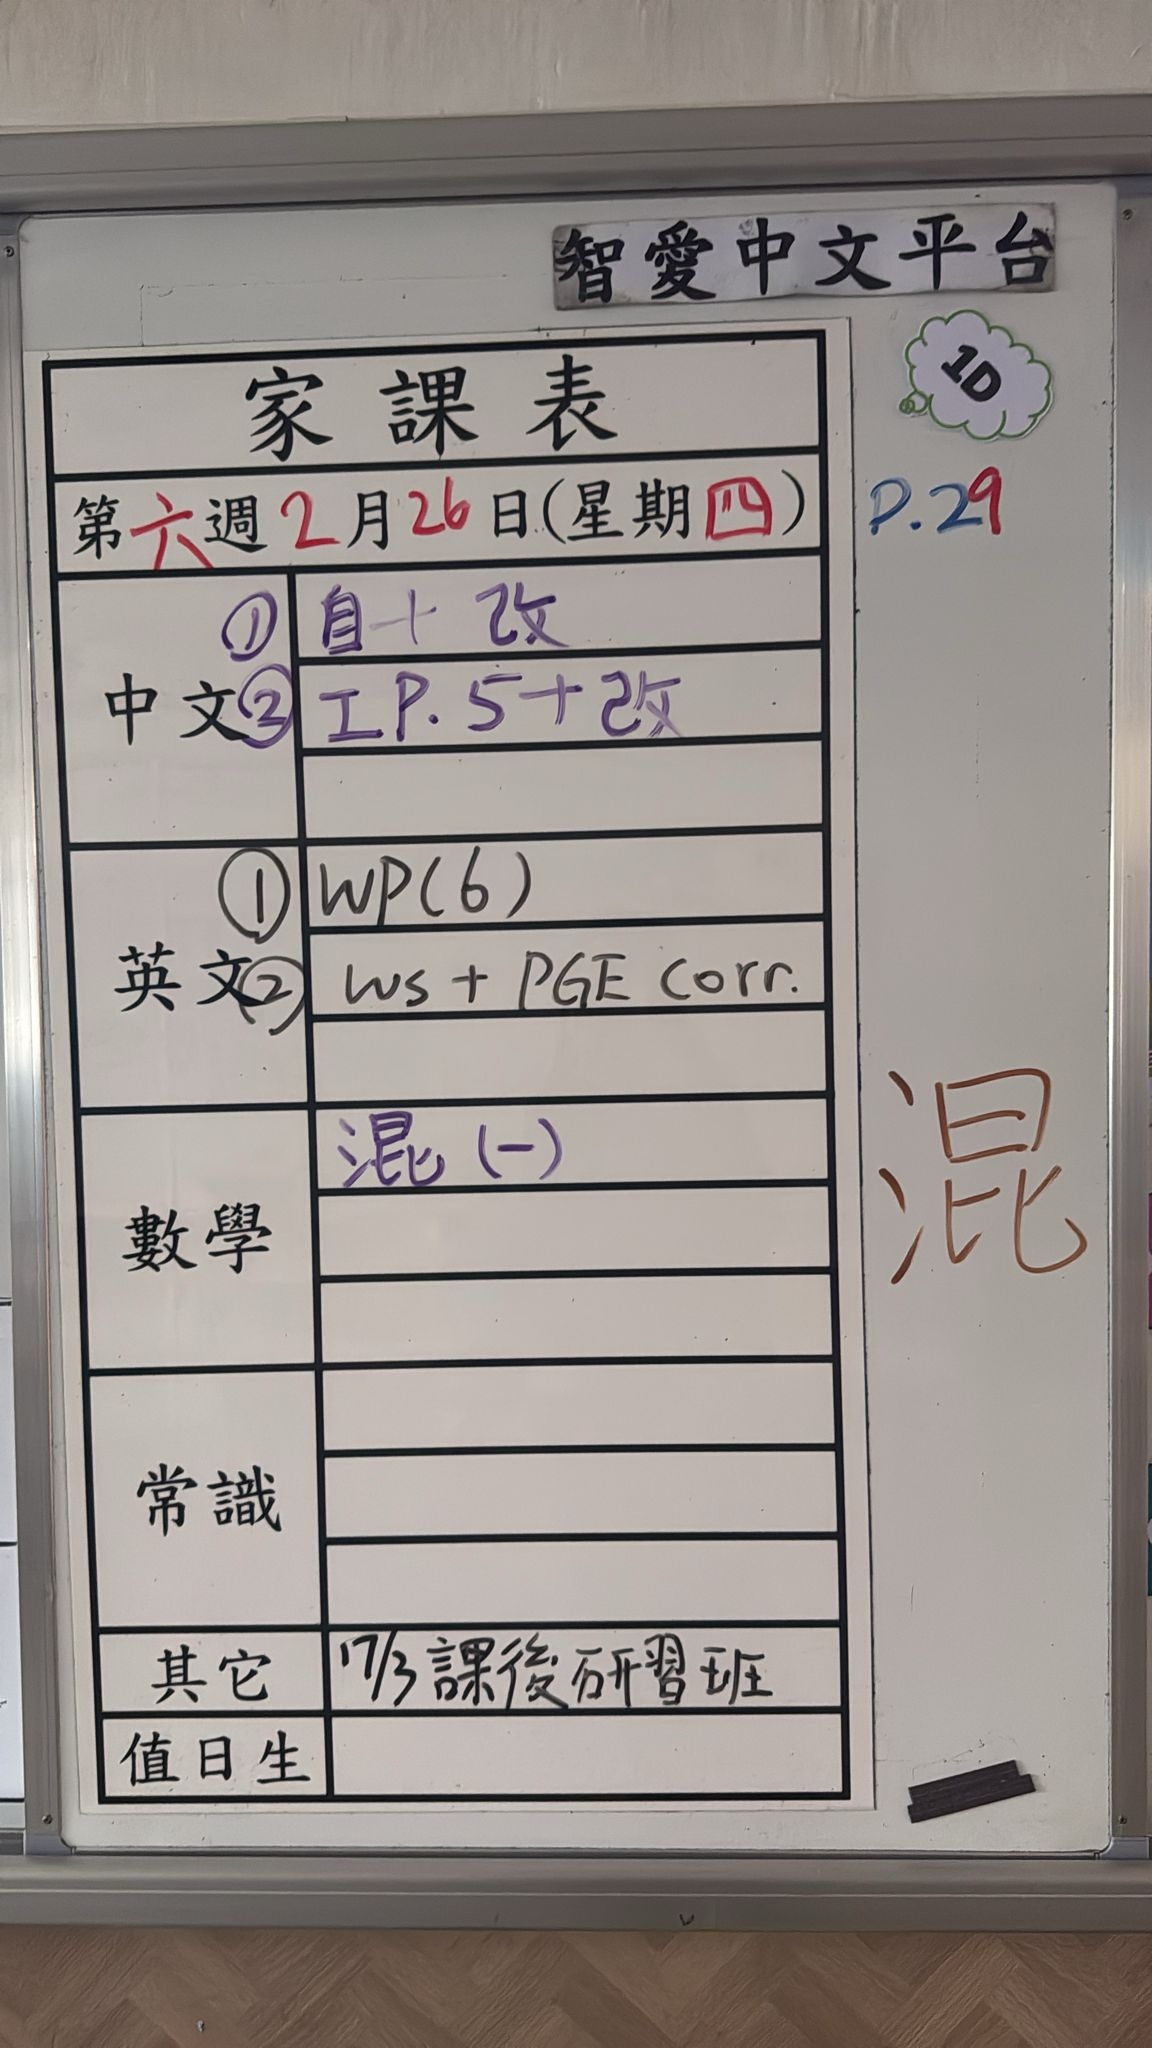 智愛中文平台
1D
家課表
第六週2月26日(星期四)
P.29
中文
① 自+改
② 工P.5+改
英文
① WP(6)
② WS + PGE corr.
數學
混(一)
混
常識
其它
17/3課後研習班
值日生